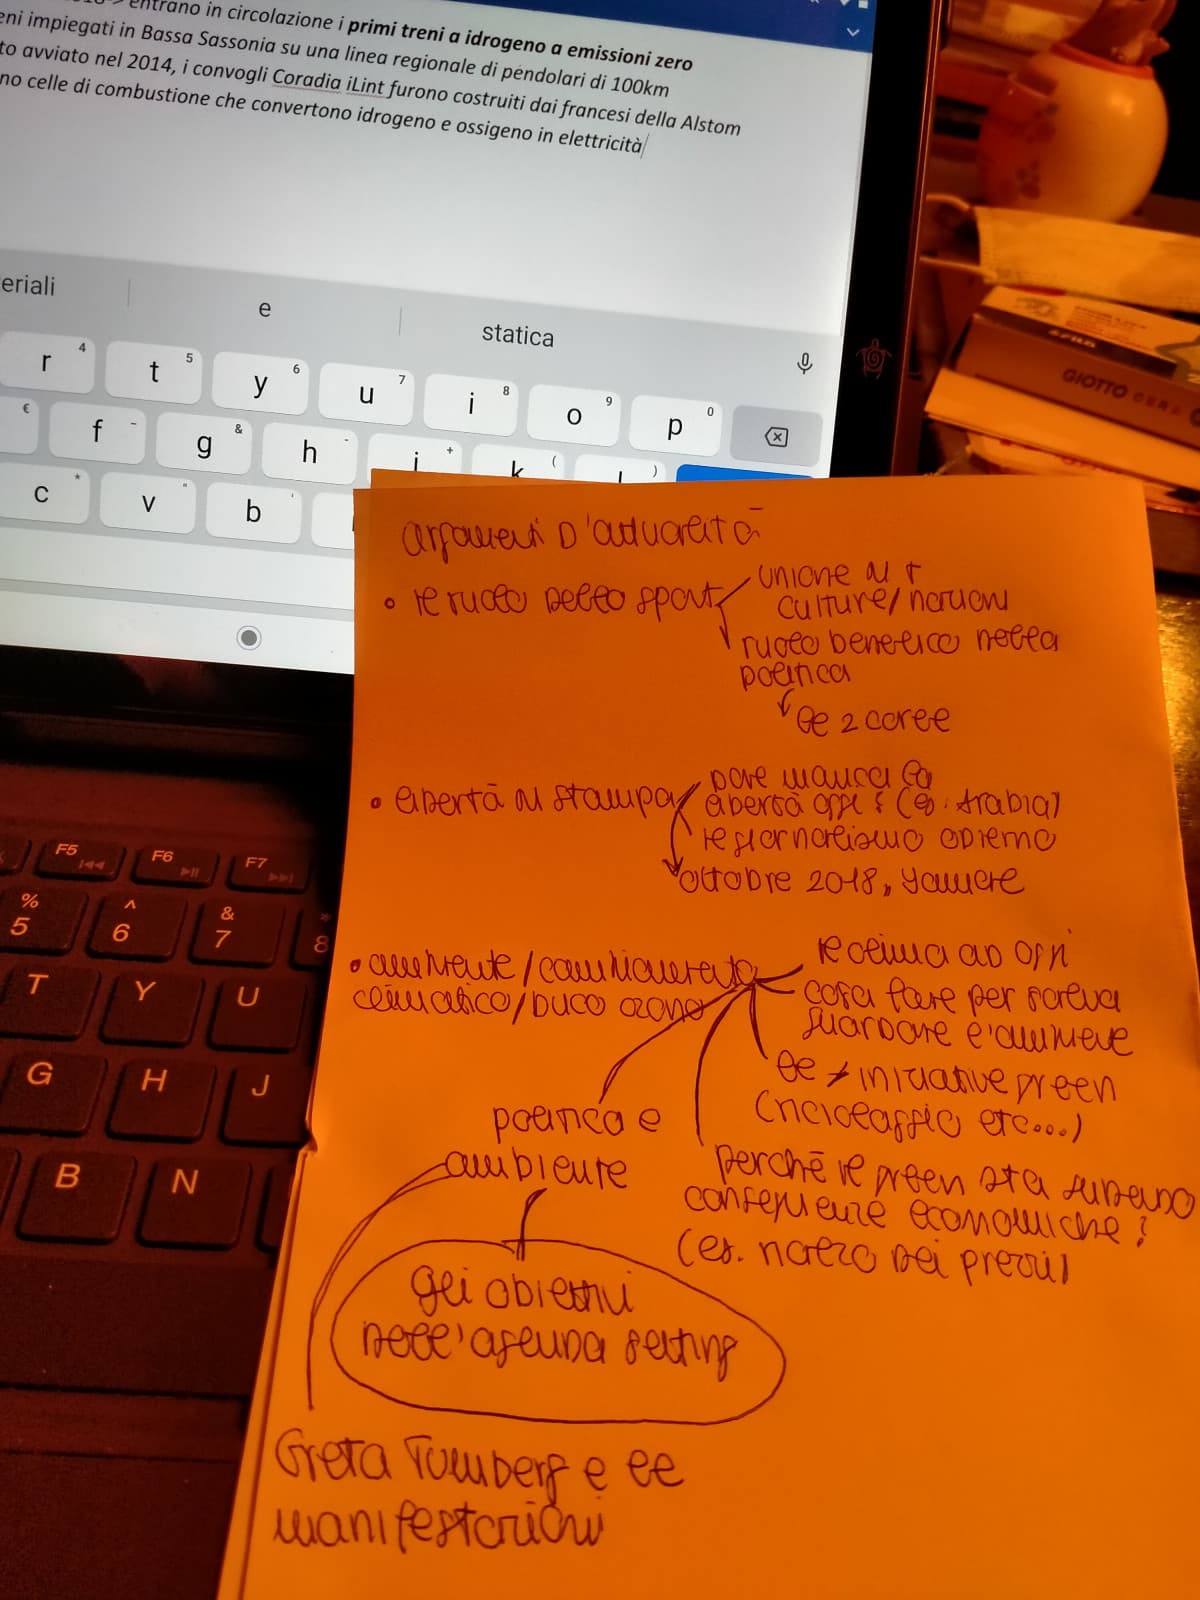 entrano in circolazione i primi treni a idrogeno a emissioni zero
eni impiegati in Bassa Sassonia su una linea regionale di pendolari di 100km
to avviato nel 2014, i convogli Coradia iLint furono costruiti dai francesi della Alstom
no celle di combustione che convertono idrogeno e ossigeno in elettricità
eriali
e
statica
r 4 t 5 y 6 u 7 i 8 o 9 p 0
€ f - g & h j + k ( l )
c * v " b '
GIOTTO CERA
argomenti D'attualità
• il ruolo dello sport
unione di +
culture/nazioni
ruolo benefico nella
politica
le 2 coree
• libertà di stampa
dove manca la
libertà oggi? (es. Arabia)
il giornalismo odierno
ottobre 2018, Yamere
• ambiente/cambiamento
climatico/buco ozono
il clima ad oggi
cosa fare per salva
guardare l'ambiente
le ≠ iniziative green
(riciclaggio etc...)
politica e
ambiente
perchè il green sta subendo
conseguenze economiche?
(es. rialzo dei prezzi)
gli obiettivi
dell'agenda setting
Greta Tumberg e le
manifestazioni
F5 F6 F7
% 5 ^ 6 & 7 * 8
T Y U
G H J
B N